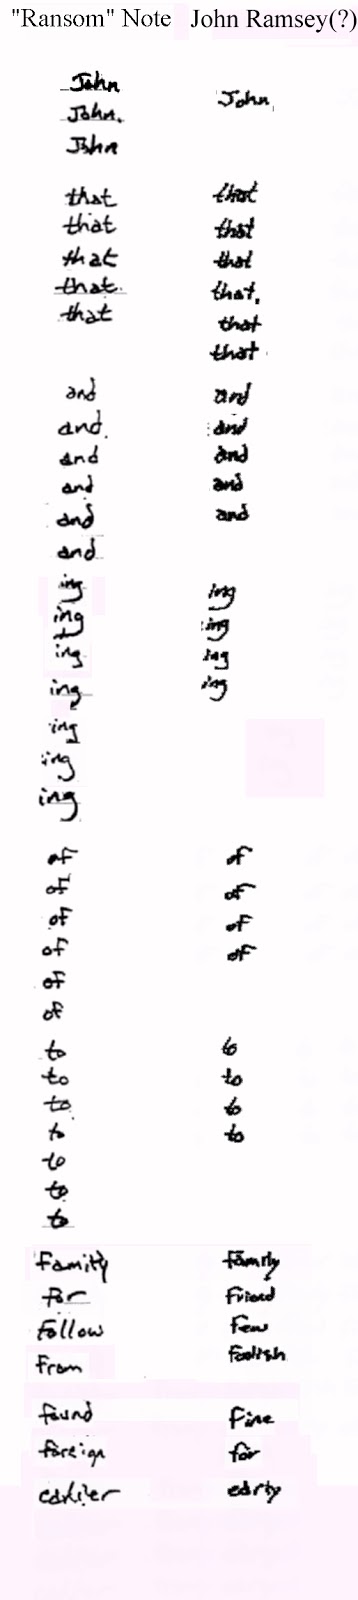 "Ransom" Note John Ramsey(?)
John
John. John,
John
that that
that that
that that
that. that,
that that
that
and and
and. and
and and
and and
and and
and
ing ing
ing ing
ing ing
ing ing
ing
ing
ing
of of
of of
of of
of of
of
of
to to
to to
to to
to to
to
to
to
Family family
For Friend
Follow Few
From foolish
found Fine
foreign for
earlier early